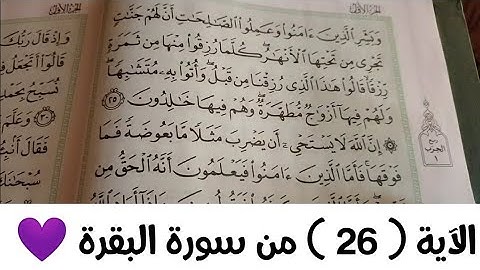 وَبَشِّرِ ٱلَّذِينَ ءَامَنُوا۟ وَعَمِلُوا۟ ٱلصَّٰلِحَٰتِ أَنَّ لَهُمْ جَنَّٰتٍ
تَجْرِى مِن تَحْتِهَا ٱلْأَنْهَٰرُ كُلَّمَا رُزِقُوا۟ مِنْهَا مِن ثَمَرَةٍ
رِّزْقًا قَالُوا۟ هَٰذَا ٱلَّذِى رُزِقْنَا مِن قَبْلُ وَأُتُوا۟ بِهِۦ مُتَشَٰبِهًا
وَلَهُمْ فِيهَآ أَزْوَٰجٌ مُّطَهَّرَةٌ وَهُمْ فِيهَا خَٰلِدُونَ ٢٥
۞ إِنَّ ٱللَّهَ لَا يَسْتَحْىِۦٓ أَن يَضْرِبَ مَثَلًا مَّا بَعُوضَةً فَمَا
فَوْقَهَا فَأَمَّا ٱلَّذِينَ ءَامَنُوا۟ فَيَعْلَمُونَ أَنَّهُ ٱلْحَقُّ مِن
وَإِذْ قَالَ رَبُّكَ
قَالُوٓا۟ أَتَجْعَلُ
نُسَبِّحُ بِحَمْدِ
٣٠ وَعَلَّمَ
فَقَالَ
سُبْحَٰنَكَ
الآية ( 26 ) من سورة البقرة 💜